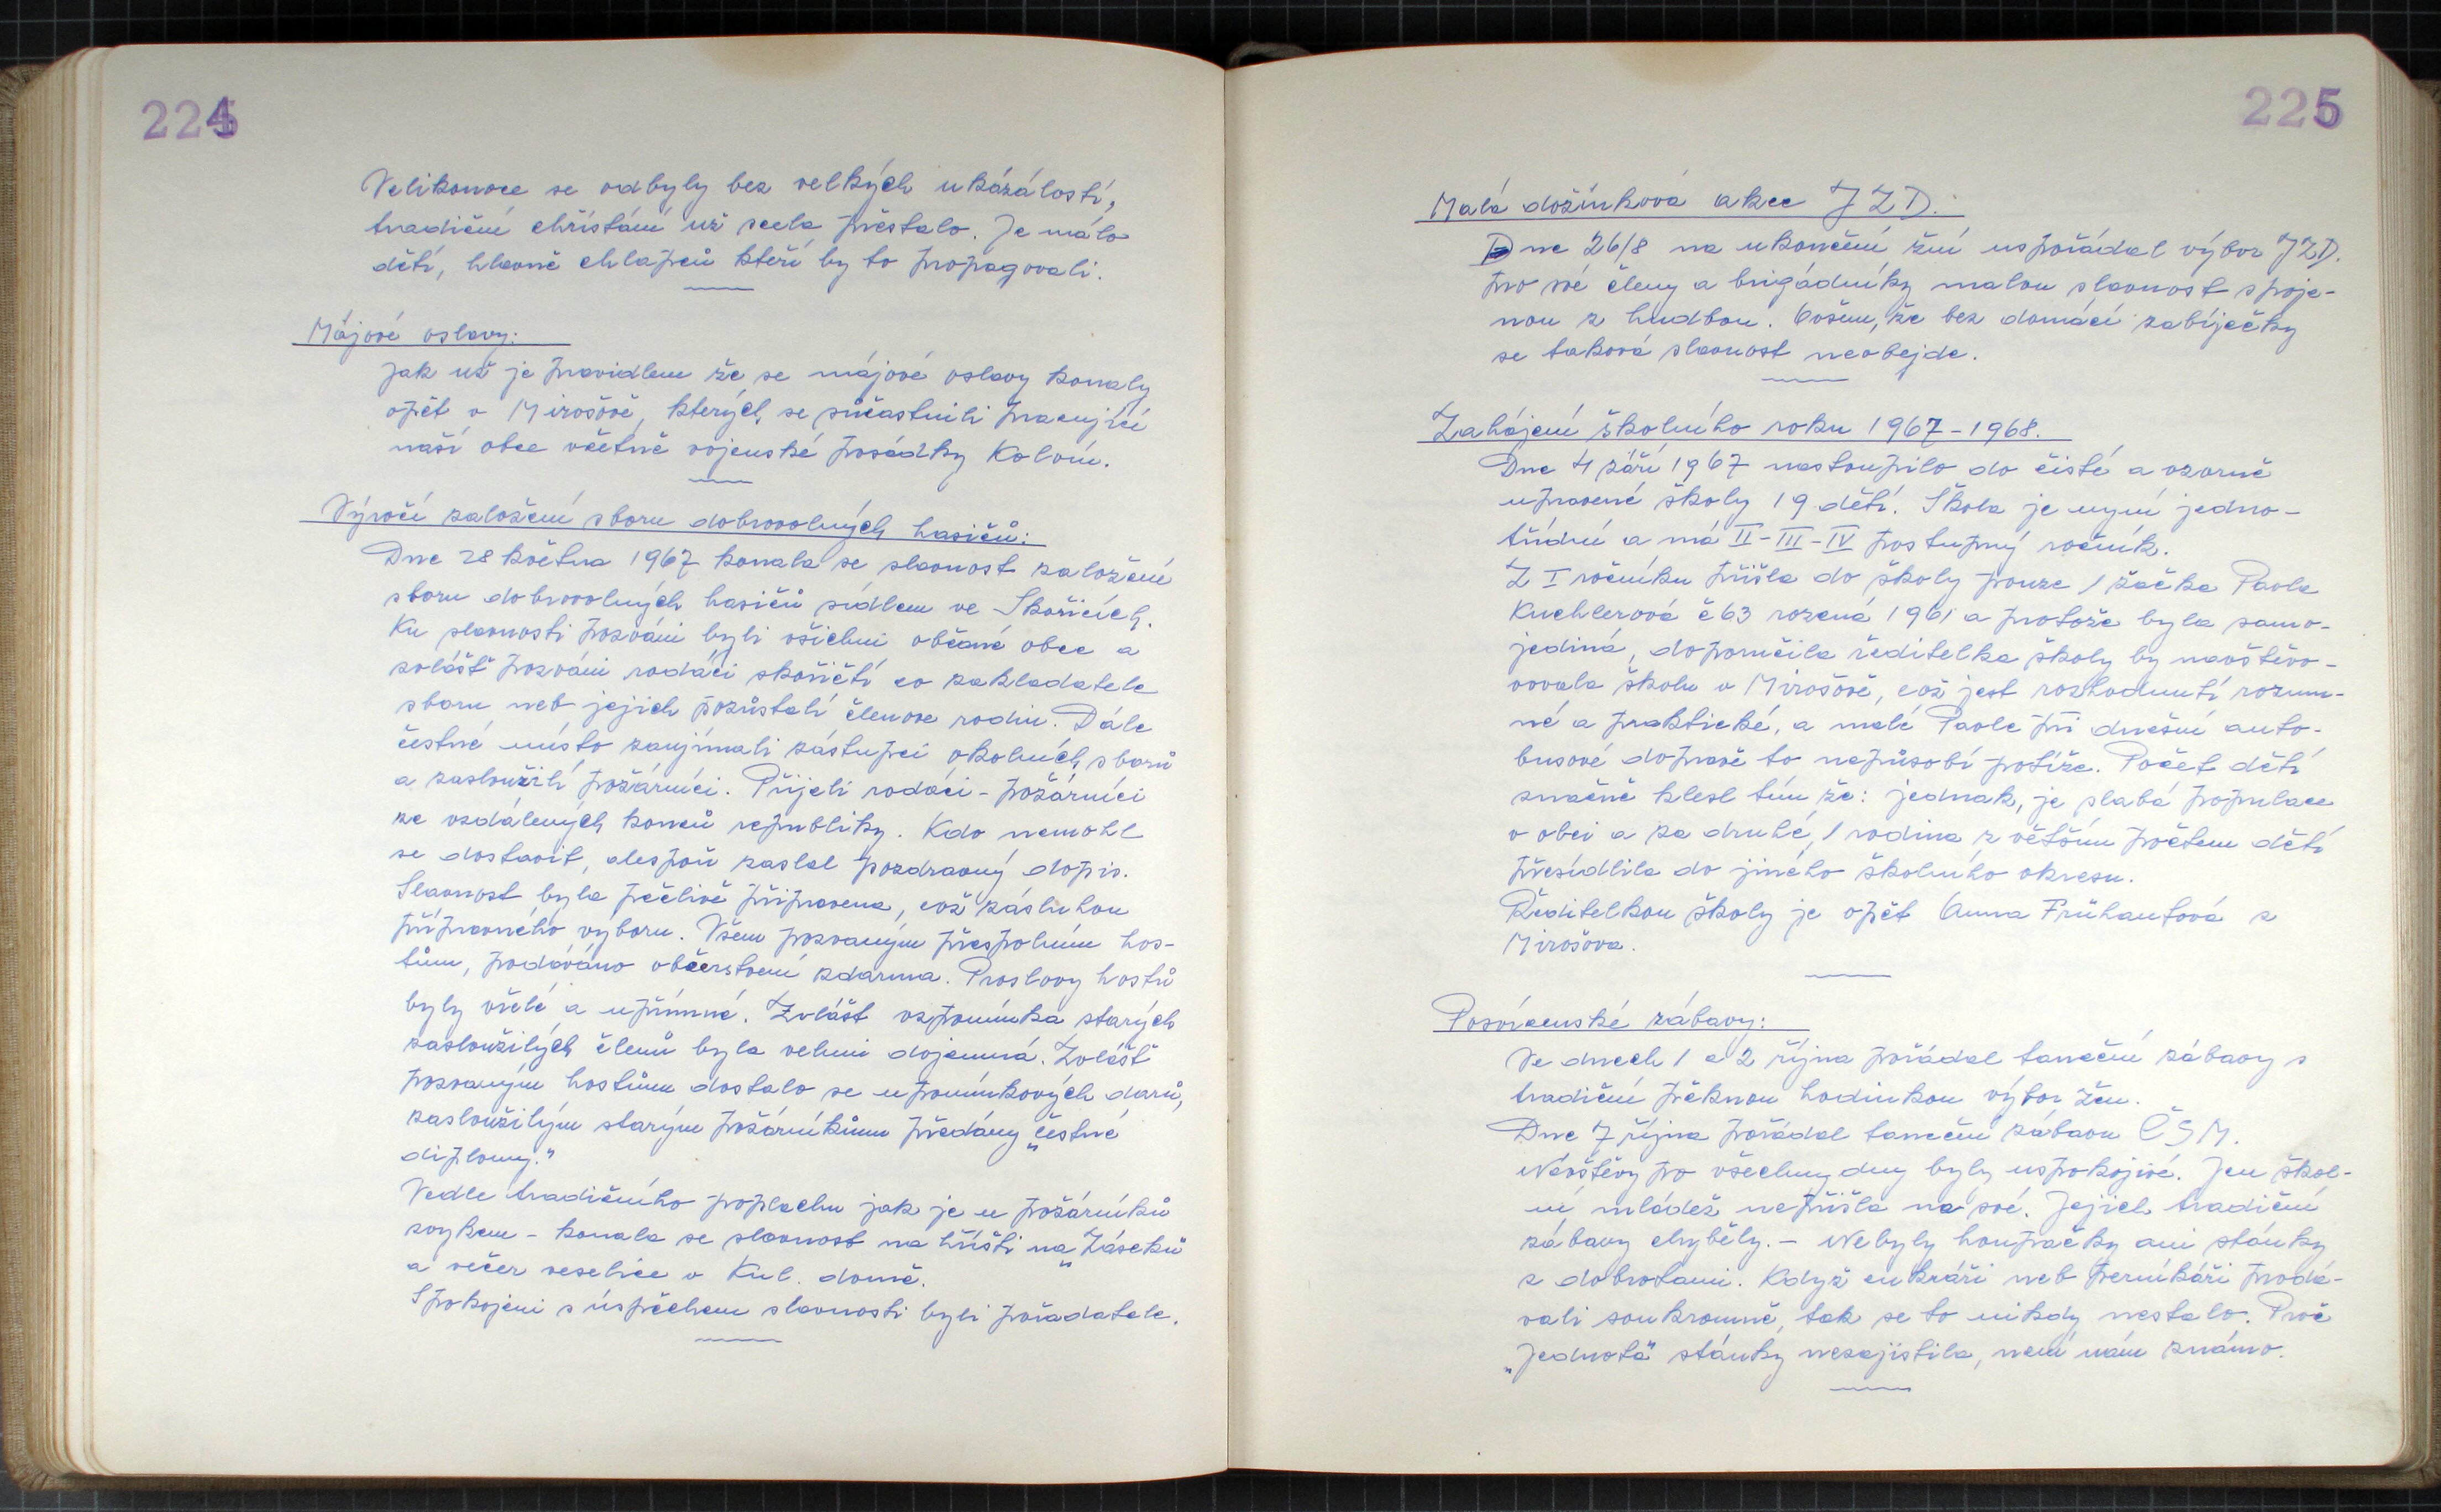 224
Velikonoce se odbyly bez velkých ukázálostí,
tradiční chřístání už scela přestalo. Je málo
dětí, hlavně chlapců kteří by to propagovali.
Májové oslavy:
Jak už je pravidlem že se májové oslavy konaly
opět v Mirošově, kterých se súčastnili pracující
naší obce včetně vojenské posádky Kolvín.
Výročí založení sboru dobrovolných hasičů:
Dne 28 května 1967 konala se slavnost založení
sboru dobrovolných hasičů sídlem ve Skořicích.
Ku slavnosti pozváni byli všichni občané obce a
zvlášť pozváni rodáci skořičtí co zakladatele
sboru neb jejich pozůstalí členove rodin. Dále
čestné místo zaujímali zástupci okolních sborů
a zasloužilí požárníci. Přijeli rodáci - požárníci
ze vzdálených konců republiky. Kdo nemohl
se dostavit, alespoň zaslal pozdravný dopis.
Slavnost byla pečlivě připravena, což zásluhou
přípravného vyboru. Všem pozvaným přespolním hos-
tům, podáváno občerstvení zdarma. Proslovy hostů
byly vřelé a upřímné. Zvlášt vzpomínka starých
zasloužilých členů byla velmi dojemná. Zvlášť
pozvaným hostům dostalo se upomínkových darů,
zasloužilým starým požárníkům předány „čestné
diplomy."
Vedle tradičního poplachu jak je u požárníků
zvykem - konala se slavnost na hřišti na „Zárčků
a večer veselice v Kul. domě.
Spokojeni s úspěchem slavnosti byli pořadatele.
225
Malá dožínková akce JZD.
Dne 26/8 na ukončení žní uspořádal výbor JZD.
pro své členy a brigádníky malou slavnost spoje-
nou z hudbou. Ovšem, že bez domácí zabíječky
se taková slavnost neobejde.
Zahájení školního roku 1967-1968.
Dne 4 září 1967 nastoupilo do čisté a vzorně
upravené školy 19 dětí. Škola je nyní jedno-
třídní a má II-III-IV postupný ročník.
Z I ročníku přišla do školy pouze 1 žačka Pavla
Kuchlerová č 63 rozená 1961 a protože byla samo-
jediná, doporučila ředitelka školy by navštěvo-
vovala školu v Mirošově, což jest rozhodnutí rozum-
né a praktické, a malé Pavle při dnešní auto-
busové dopravě to nepůsobí potíže. Počet dětí
značně klesl tím že: jednak, je slabá populace
v obci a za druhé, 1 rodina z větším počtem dětí
přesídlila do jiného školního okresu.
Ředitelkou školy je opět Anna Frühaufová z
Mirošova.
Posvícenské zábavy:
Ve dnech 1 a 2 října pořádal taneční zábavy s
tradiční pěknou hodinkou výbor žen.
Dne 7 října pořádal taneční zábavu ČSM.
Návštěvy po všechny dny byly uspokojivé. Jen škol-
ní mládež nepřišla na své. Jejich tradiční
zábavy chyběly. - Nebyly houpačky ani stánky
z dobrotami. Když cukráři neb perníkáři prodá-
vali soukromně, tak se to nikdy nestalo. Proč
„Jednota" stánky nezajistila, není nám známo.